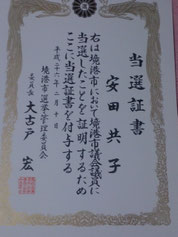 当選証書
安田共子
右は境港市において境港市議会議員に
当選したことを証明するため
ここに当選証書を付与する
平成二十六年二月十日
境港市選挙管理委員会
委員長 大古戸 宏